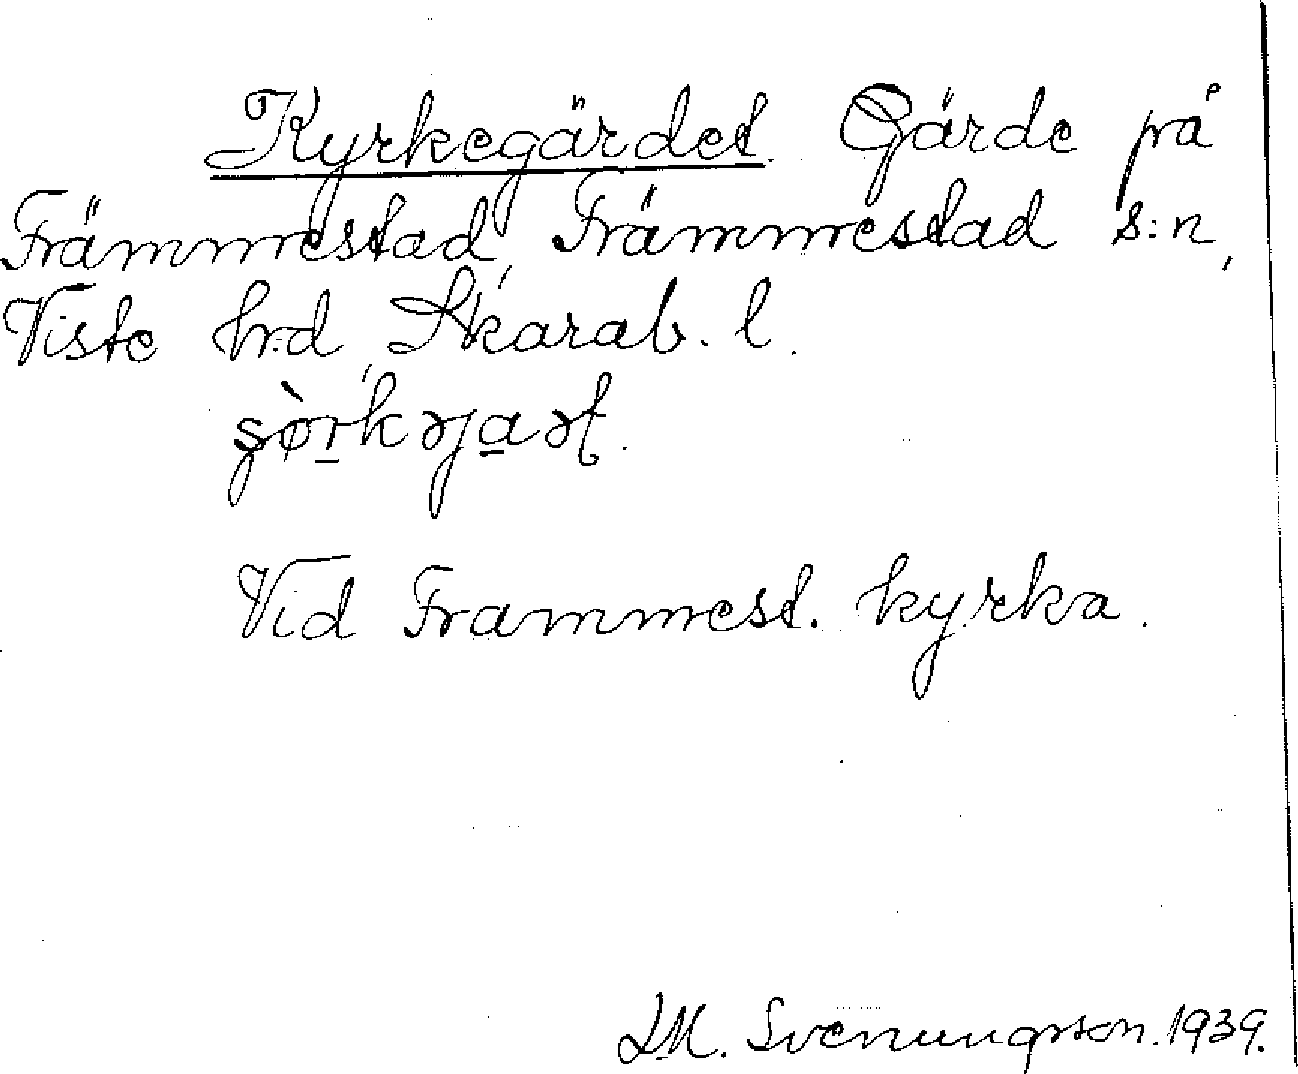 Kyrkegärdet. Gärde på
Främmestad, Främmestad s:n,
Viste h:d, Skarab. l.
Vid Frammest. kyrka.
L.M. Svenungsson. 1939.